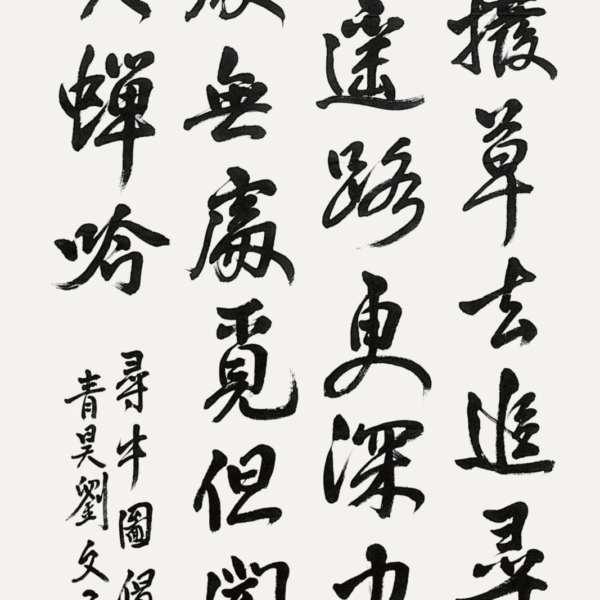 撥草去追尋
遥路更深力
無處覓但聞
蟬吟
尋牛圖偈
青昊劉文